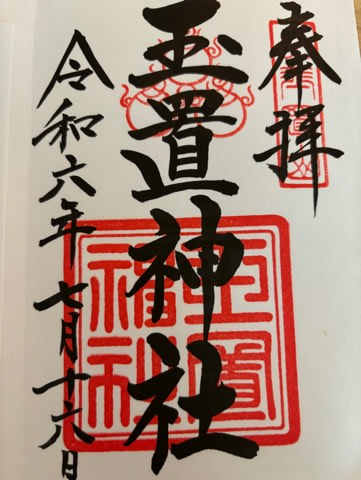 奉拝
玉置神社
令和六年七月十六日
玉置
神社